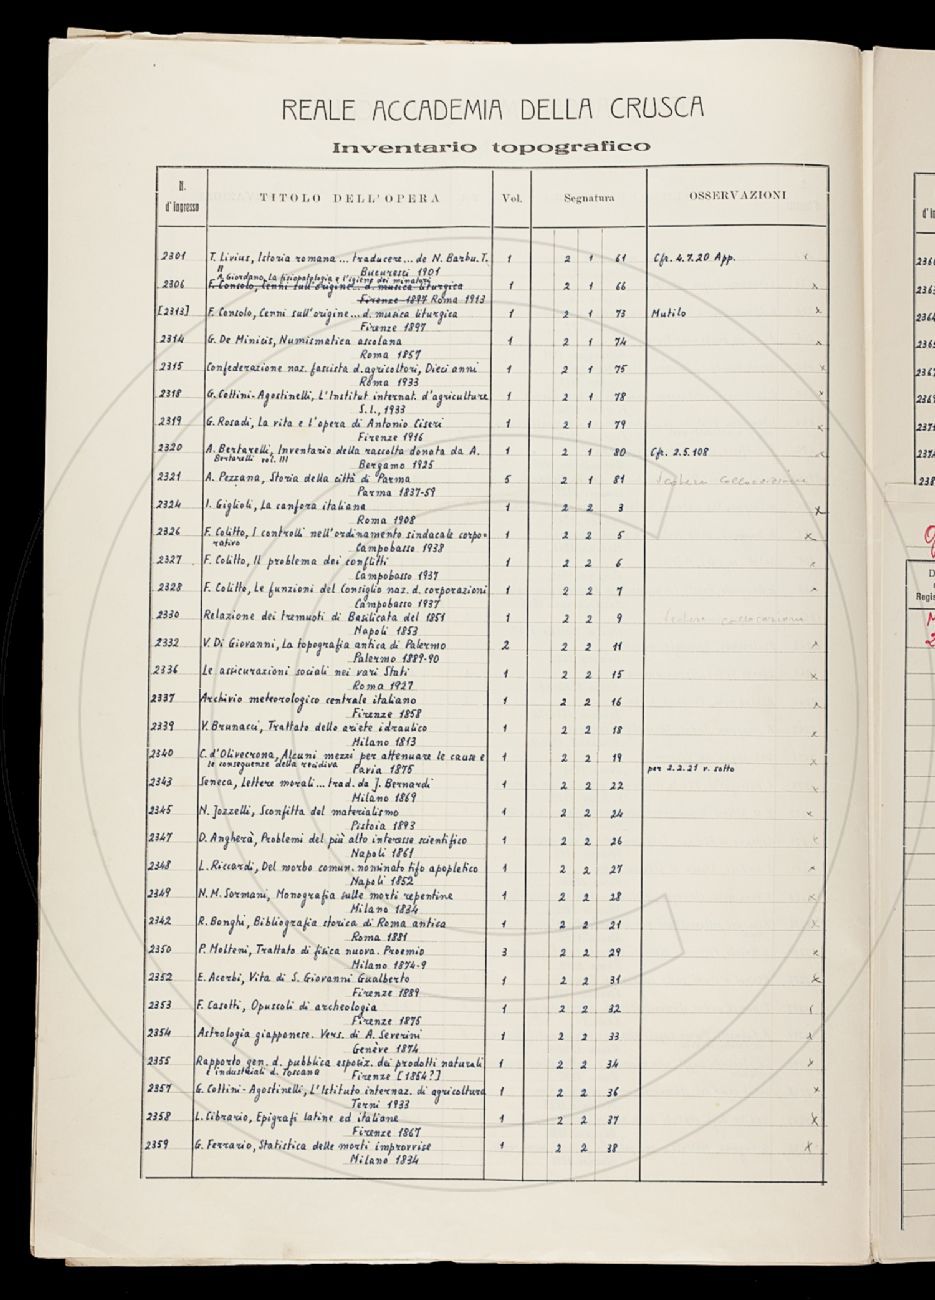 REALE ACCADEMIA DELLA CRUSCA
Inventario topografico
N. d'ingresso TITOLO DELL'OPERA Vol. Segnatura OSSERVAZIONI
2301 T. Livius, Istoria romana... traducere... de N. Barbu. T. 1 2 1 61 Cfr. 4.7.20 App.
II Bucuresci 1901
A. Giordano, La fisiopatologia e l'igiene dei minatori
2306 F. Consolo, Cenni sull'origine... d. musica liturgica 1 2 1 66 x
Firenze 1897 Roma 1913
[2313] F. Consolo, Cenni sull'origine... d. musica liturgica 1 2 1 73 Mutilo x
Firenze 1897
2314 G. De Minicis, Numismatica ascolana 1 2 1 74 x
Roma 1857
2315 Confederazione naz. fascista d. agricoltori, Dieci anni 1 2 1 75 x
Roma 1933
2318 G. Cottini-Agostinelli, L'Institut internat. d'agriculture 1 2 1 78 x
S.l., 1933
2319 G. Rosadi, La vita e l'opera di Antonio Ciseri 1 2 1 79 x
Firenze 1916
2320 A. Bertarelli, Inventario della raccolta donata da A. 1 2 1 80 Cfr. 2.5.108
Bertarelli vol. III Bergamo 1925
2321 A. Pezzana, Storia della città di Parma 5 2 1 81
Parma 1837-59
2324 I. Giglioli, La canfora italiana 1 2 2 3 x
Roma 1908
2326 F. Colitto, I controlli nell'ordinamento sindacale corpo- 1 2 2 5 x
rativo Campobasso 1938
2327 F. Colitto, Il problema dei conflitti 1 2 2 6
Campobasso 1937
2328 F. Colitto, Le funzioni del Consiglio naz. d. corporazioni 1 2 2 7
Campobasso 1937
2330 Relazione dei tremuoti di Basilicata del 1851 1 2 2 9
Napoli 1853
2332 V. Di Giovanni, La topografia antica di Palermo 2 2 2 11 x
Palermo 1889-90
2336 Le assicurazioni sociali nei vari Stati 1 2 2 15 x
Roma 1927
2337 Archivio meteorologico centrale italiano 1 2 2 16 x
Firenze 1858
2339 V. Brunacci, Trattato dello ariete idraulico 1 2 2 18 x
Milano 1813
2340 C. d'Olivecrona, Alcuni mezzi per attenuare le cause e 1 2 2 19 x
le conseguenze della recidiva Pavia 1875 per 2.2.21 v. sotto
2343 Seneca, Lettere morali... trad. da J. Bernardi 1 2 2 22 x
Milano 1869
2345 N. Jozzelli, Sconfitta del materialismo 1 2 2 24 x
Pistoia 1893
2347 D. Angherà, Problemi del più alto interesse scientifico 1 2 2 26 x
Napoli 1861
2348 L. Riccardi, Del morbo comun. nominato tifo apopletico 1 2 2 27
Napoli 1852
2349 N. M. Sormani, Monografia sulle morti repentine 1 2 2 28 x
Milano 1834
2342 R. Bonghi, Bibliografia storica di Roma antica 1 2 2 21 x
Roma 1881
2350 P. Molteni, Trattato di fisica nuova. Proemio 3 2 2 29 x
Milano 1874-9
2352 E. Acerbi, Vita di S. Giovanni Gualberto 1 2 2 31 x
Firenze 1889
2353 F. Casotti, Opuscoli di archeologia 1 2 2 32
Firenze 1875
2354 Astrologia giapponese. Vers. di A. Severini 1 2 2 33 x
Genève 1874
2355 Rapporto gen. d. pubblica esposiz. dei prodotti naturali 1 2 2 34 x
e industriali d. Toscana Firenze [1854?]
2357 G. Cottini-Agostinelli, L'Istituto internaz. di agricoltura 1 2 2 36 x
Terni 1933
2358 L. Cibrario, Epigrafi latine ed italiane 1 2 2 37 x
Firenze 1867
2359 G. Ferrario, Statistica delle morti improvvise 1 2 2 38 x
Milano 1834